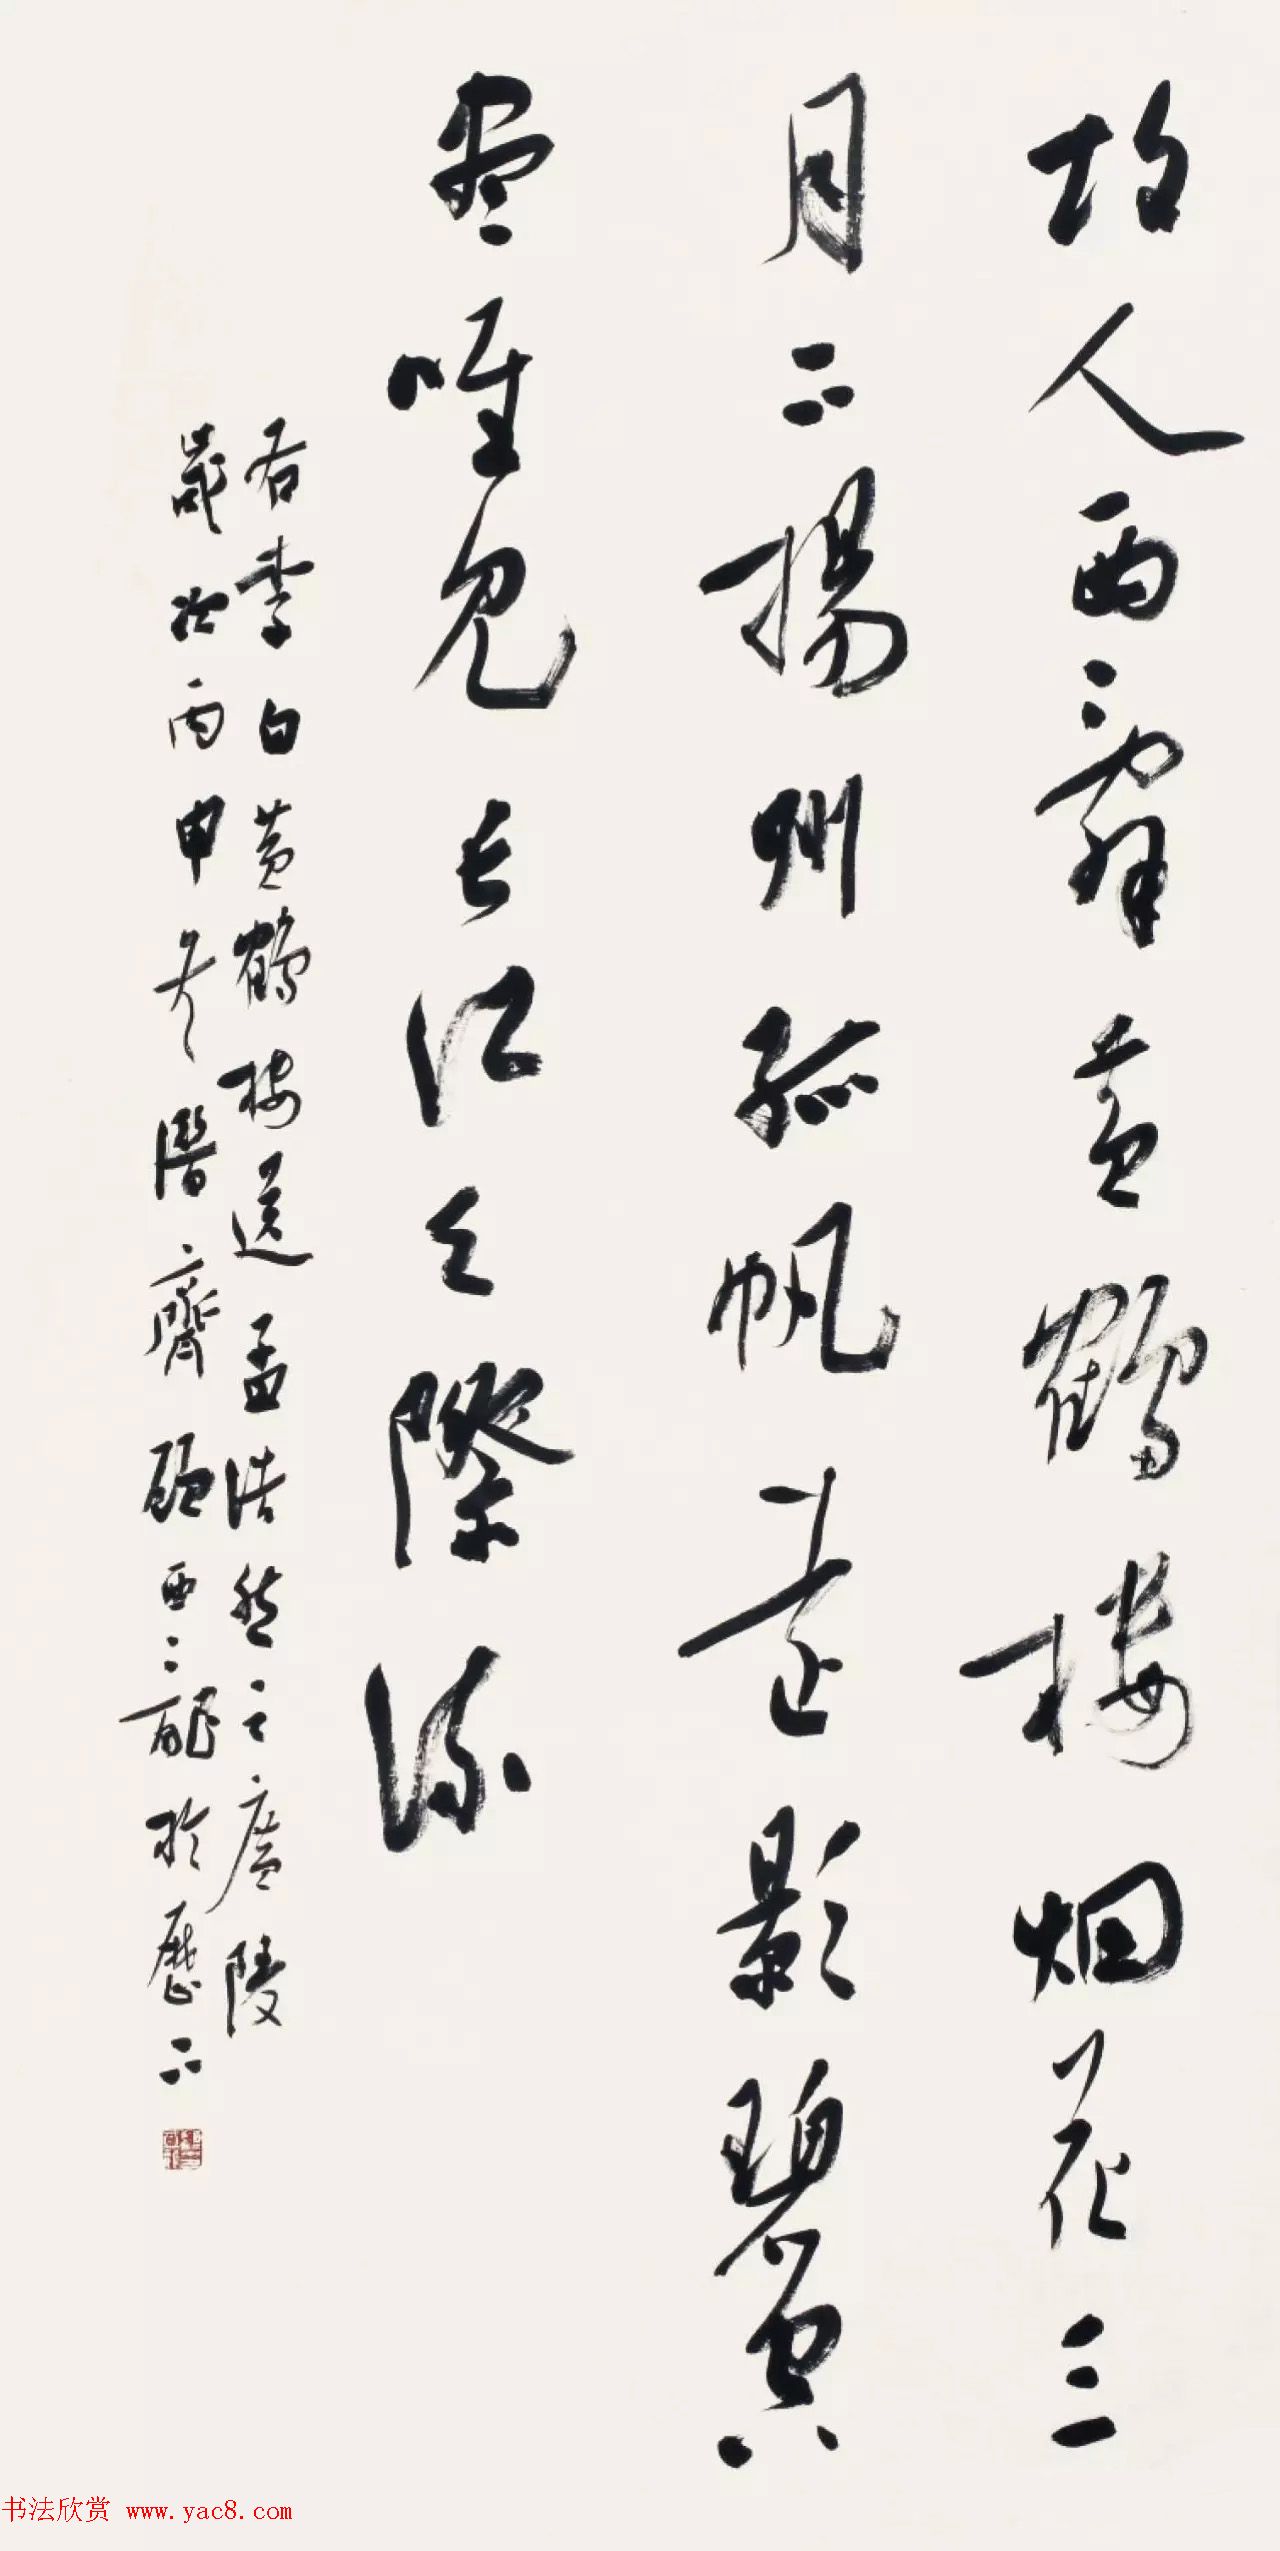 故人西辭黄鶴楼烟花三
月下揚州孤帆遠影碧空
盡唯見長江天際流
右李白黄鶴楼送孟浩然之廣陵
歲次丙申 潛齋顧亞龍於歷下
书法欣赏 www.yac8.com